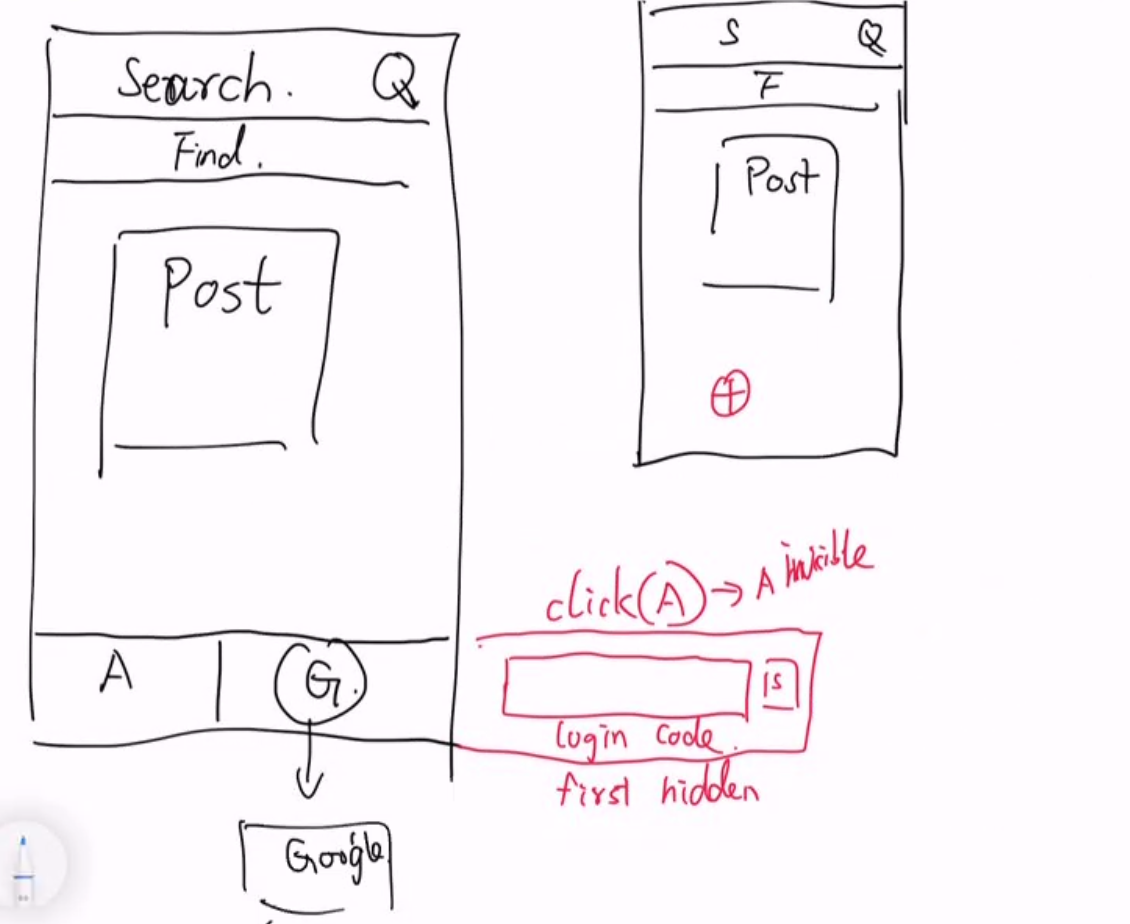 Search.
Find.
Post
A
G.
Google
S
F
Post
click (A) → A invisible
is
login code.
first hidden